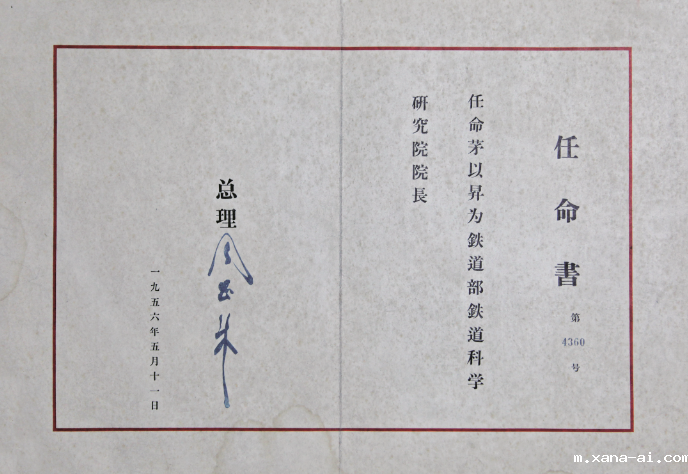 任命書
第
4360
号
任命茅以昇为鉄道部鉄道科学
研究院院長
总理
周恩来
一九五六年五月十一日
m.xana-ai.com